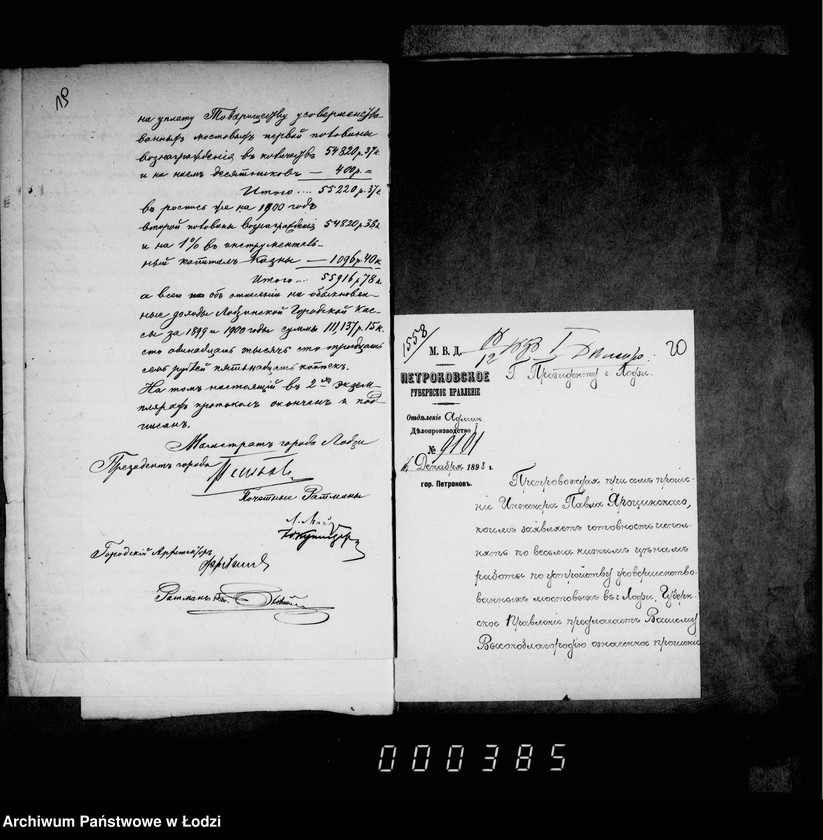 19
на уплату Товариществу усовершенство-
ванныхъ мостовыхъ первой половины
вознагражденія въ количествѣ 54820 р. 37 к.
и на наемъ десятниковъ — 400 р. =
Итого .... 55220 р. 37 к
въ роспись же на 1900 годъ
второй половины вознагражденія 54820 р. 38 к
и на 1% въ инструменталь-
ный капиталъ Казны — 1096 р. 40 к
Итого ... 55916 р. 78 к
а всего объ отнесеніи на обыкновен-
ные доходы Лодзинской Городской Кас-
сы за 1899 и 1900 годы суммы 111,137 р. 15 к
сто одинадцать тысячъ сто тридцать
семь рублей пятьнадцать копѣекъ.
На томъ настоящій въ 2хъ экзем-
плярахъ протоколъ оконченъ и под-
писанъ.
Магистратъ города Лодзи
Президентъ города
Почетные Ратманы
Городскій Архитекторъ
Ратманъ
1558
20
М. В. Д.
ПЕТРОКОВСКОЕ
ГУБЕРНСКОЕ ПРАВЛЕНІЕ
Г. Президенту г. Лодзи.
Отдѣленіе Админ
Дѣлопроизводство I
№ 9101
Декабря 1898 г.
гор. Петроковъ.
Препровождая при семъ проше-
ніе Инженера Павла Яроцинскаго,
коимъ заявляетъ готовность испол-
нять по весьма низкимъ цѣнамъ
работы по устройству усовершенство-
ванныхъ мостовыхъ въ г. Лодзи, Губерн-
ское Правленіе предлагаетъ Вашему
Высокоблагородію означенное прошеніе
000385
Archiwum Państwowe w Łodzi